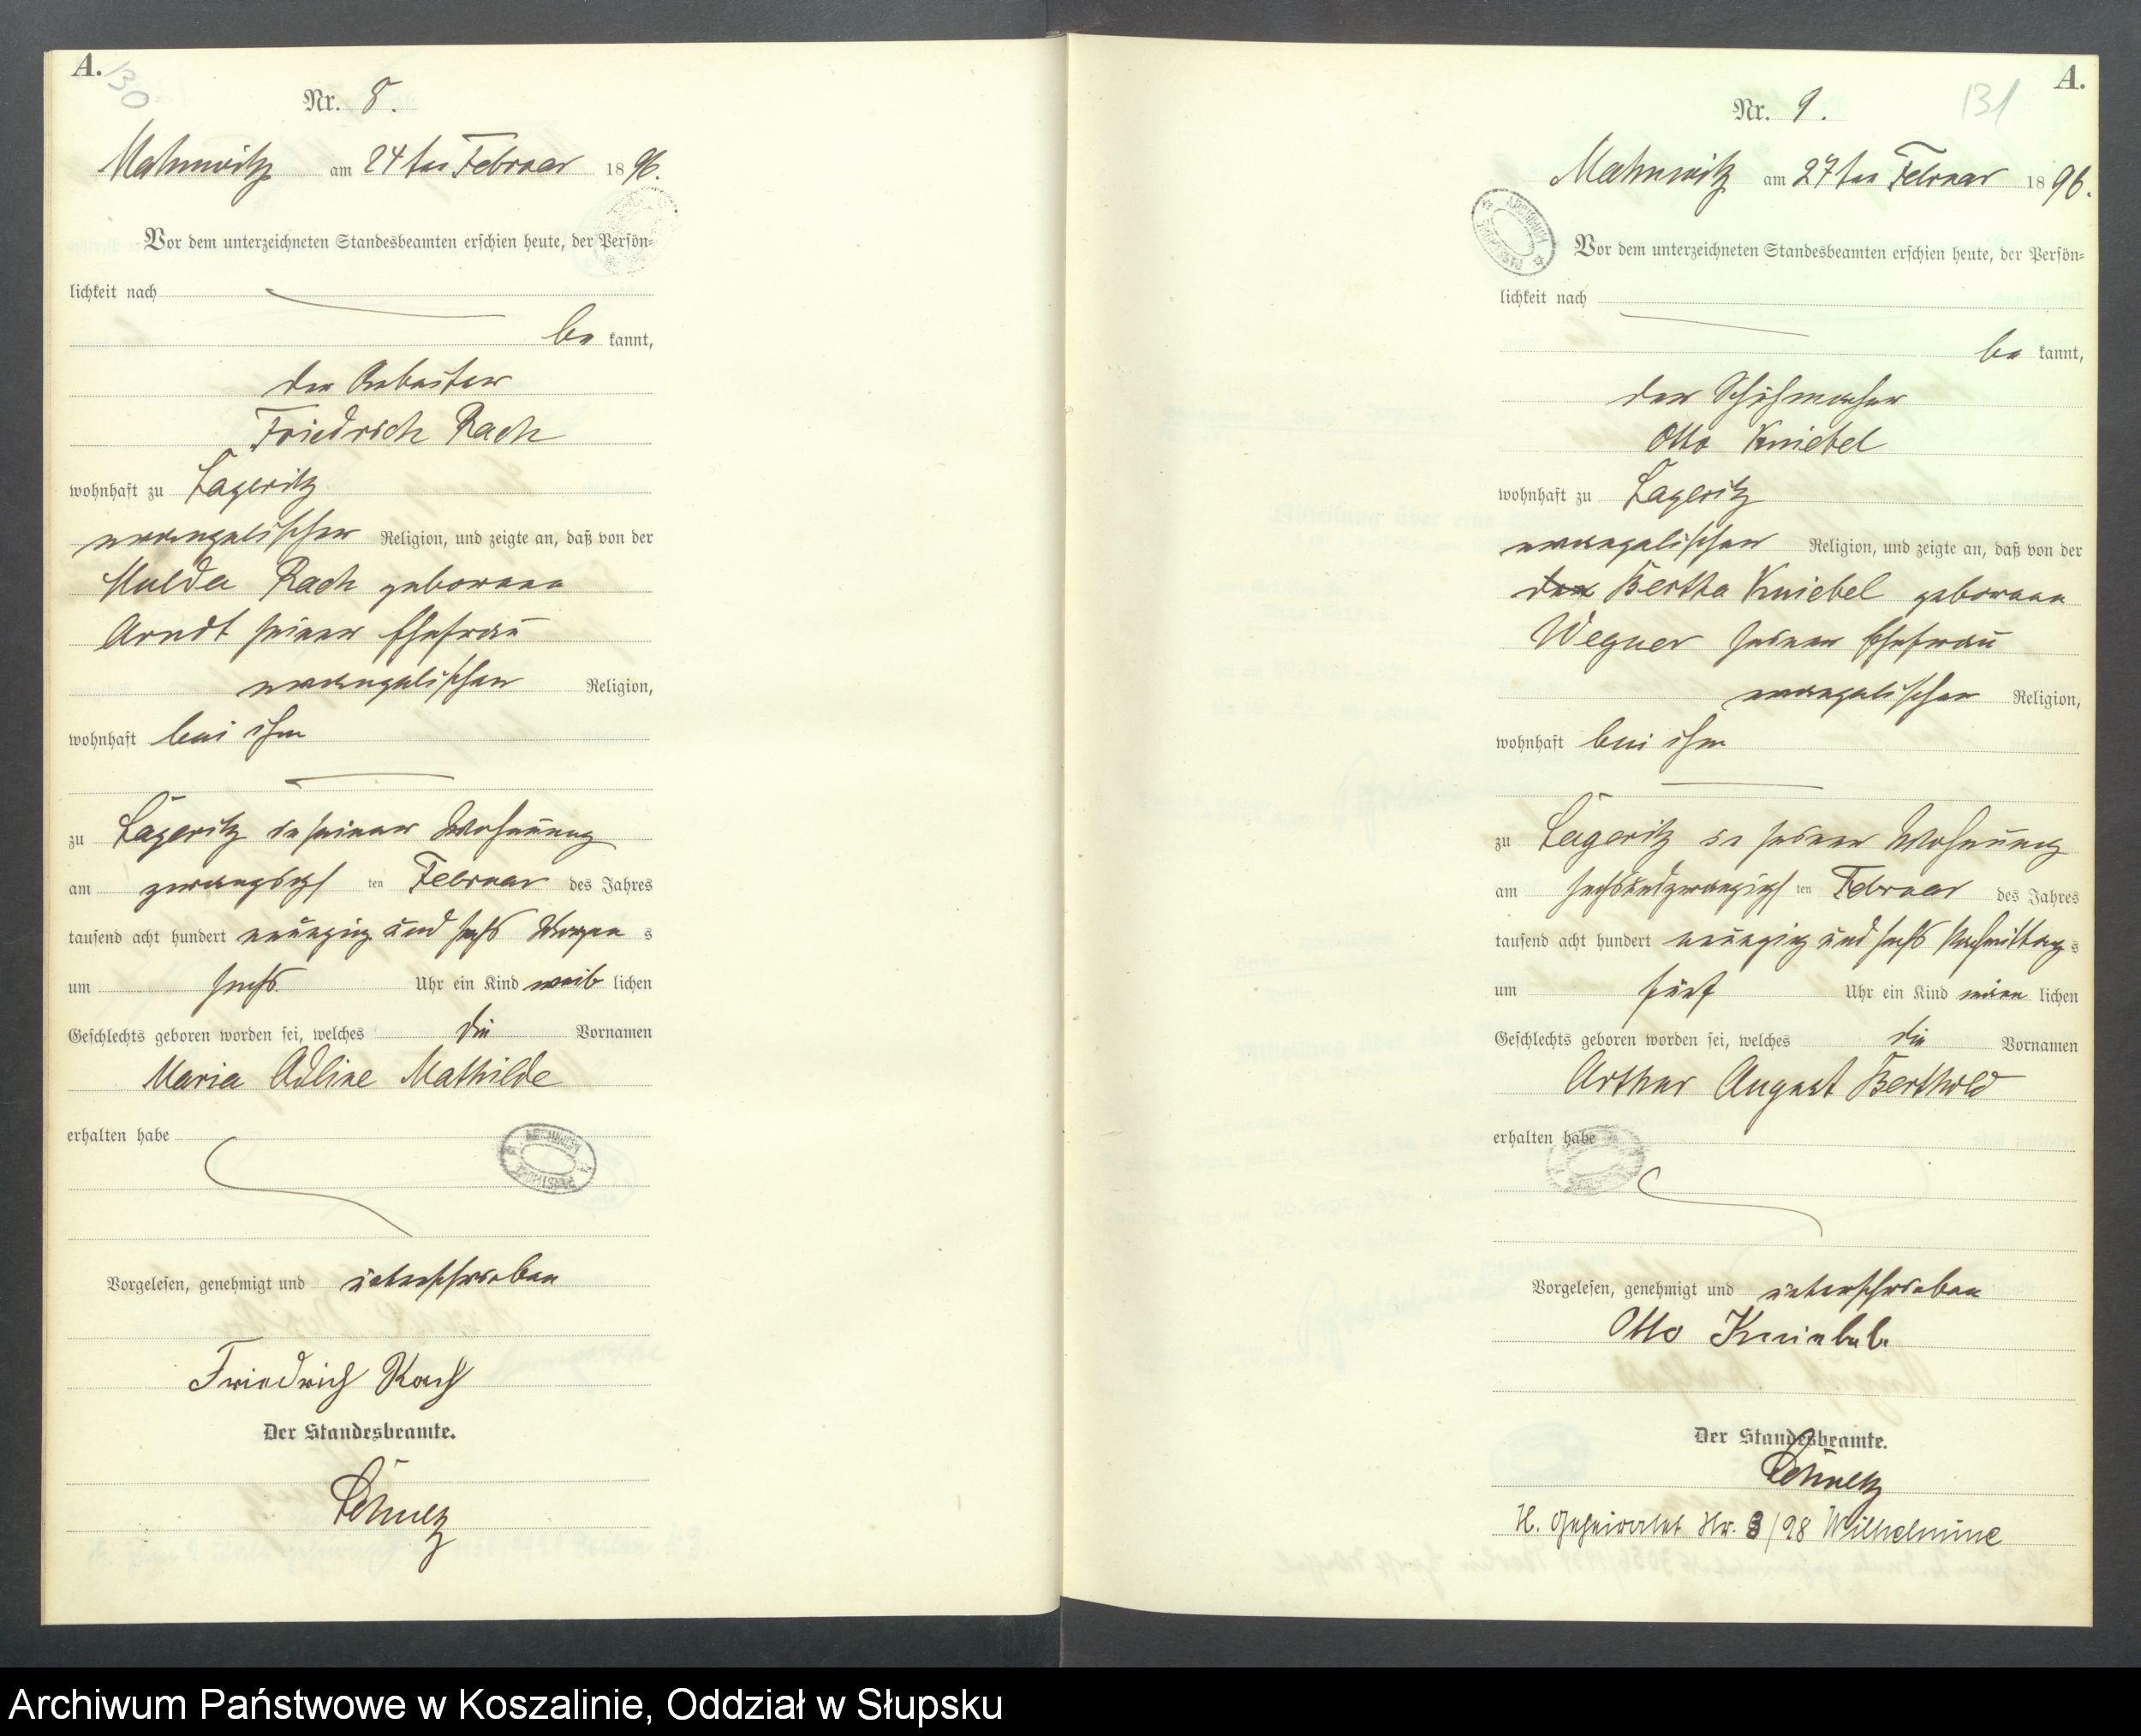 A.
130
Nr. 8.
Mahnwitz am 24ten Februar 1896.
Vor dem unterzeichneten Standesbeamten erschien heute, der Persön=
lichkeit nach
be kannt,
der Arbeiter
Friedrich Rach
wohnhaft zu Lageritz
evangelischer Religion, und zeigte an, daß von der
Hulda Rach geborene
Arndt seiner Ehefrau
evangelischer Religion,
wohnhaft bei ihm
zu Lageritz in seiner Wohnung
am zwanzigst ten Februar des Jahres
tausend acht hundert neunzig und sechs Morgen s
um sechs Uhr ein Kind weib lichen
Geschlechts geboren worden sei, welches die Vornamen
Maria Adline Mathilde
erhalten habe
Vorgelesen, genehmigt und unterschrieben
Friedrich Rach
Der Standesbeamte.
Schulz
A.
131
Nr. 9.
Mahnwitz am 27ten Februar 1896.
Vor dem unterzeichneten Standesbeamten erschien heute, der Persön=
lichkeit nach
be kannt,
der Schuhmacher
Otto Kniebel
wohnhaft zu Lageritz
evangelischer Religion, und zeigte an, daß von der
der Bertha Kniebel geborene
Wegner seiner Ehefrau
evangelischer Religion,
wohnhaft bei ihm
zu Lageritz in seiner Wohnung
am sechsundzwanzigst ten Februar des Jahres
tausend acht hundert neunzig und sechs Nachmittag s
um fünf Uhr ein Kind männ lichen
Geschlechts geboren worden sei, welches die Vornamen
Arthur August Berthold
erhalten habe
Vorgelesen, genehmigt und unterschrieben
Otto Kniebel.
Der Standesbeamte.
Schulz
H. Geheiratet Nr. 3/98 Wilhelmine
Archiwum Państwowe w Koszalinie, Oddział w Słupsku